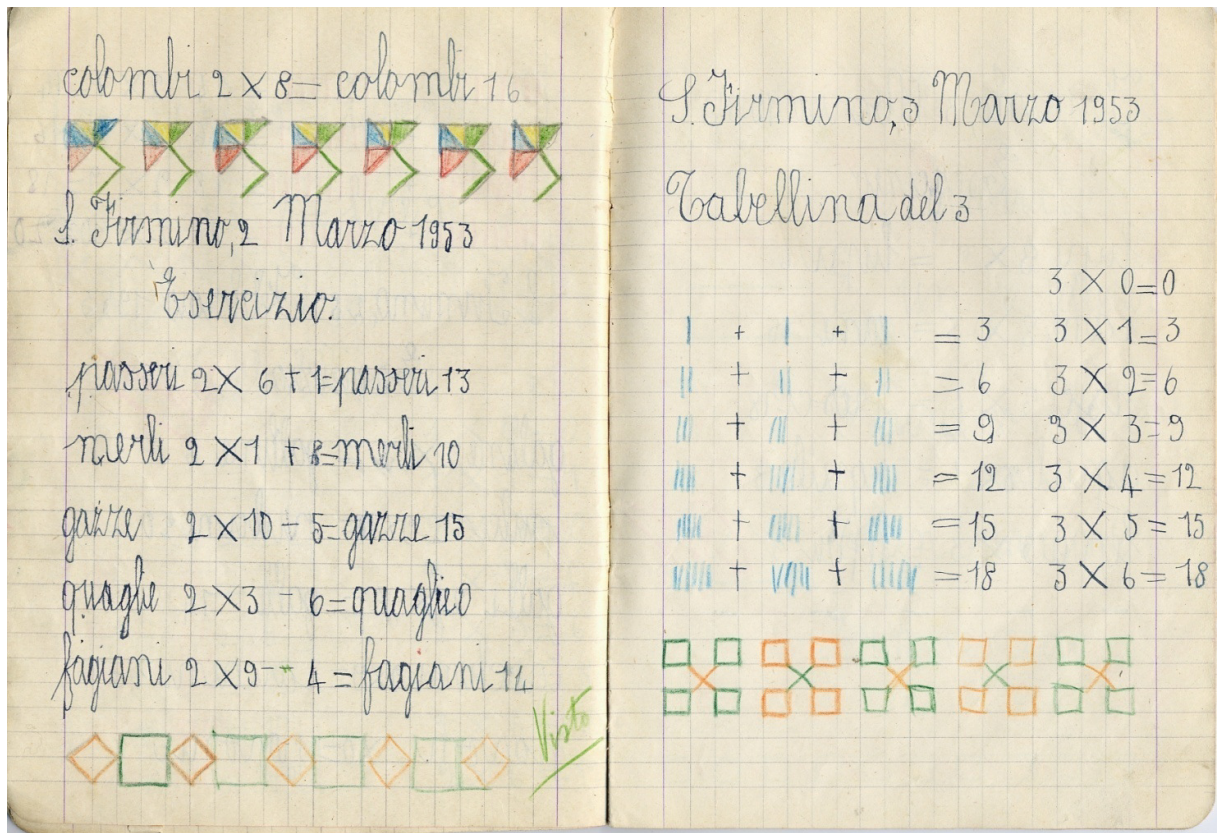 colombi 2 × 8 = colombi 16
S. Firmino, 2 Marzo 1953
Esercizio.
passeri 2 × 6 + 1 = passeri 13
merli 2 × 1 + 8 = merli 10
gazze 2 × 10 - 5 = gazze 15
quaglie 2 × 3 - 6 = quaglie 0
fagiani 2 × 9 - 4 = fagiani 14
Visto
S. Firmino, 3 Marzo 1953
Tabellina del 3
3 × 0 = 0
| + | + | = 3 3 × 1 = 3
|| + || + || = 6 3 × 2 = 6
||| + ||| + ||| = 9 3 × 3 = 9
|||| + |||| + |||| = 12 3 × 4 = 12
||||| + ||||| + ||||| = 15 3 × 5 = 15
|||||| + |||||| + |||||| = 18 3 × 6 = 18